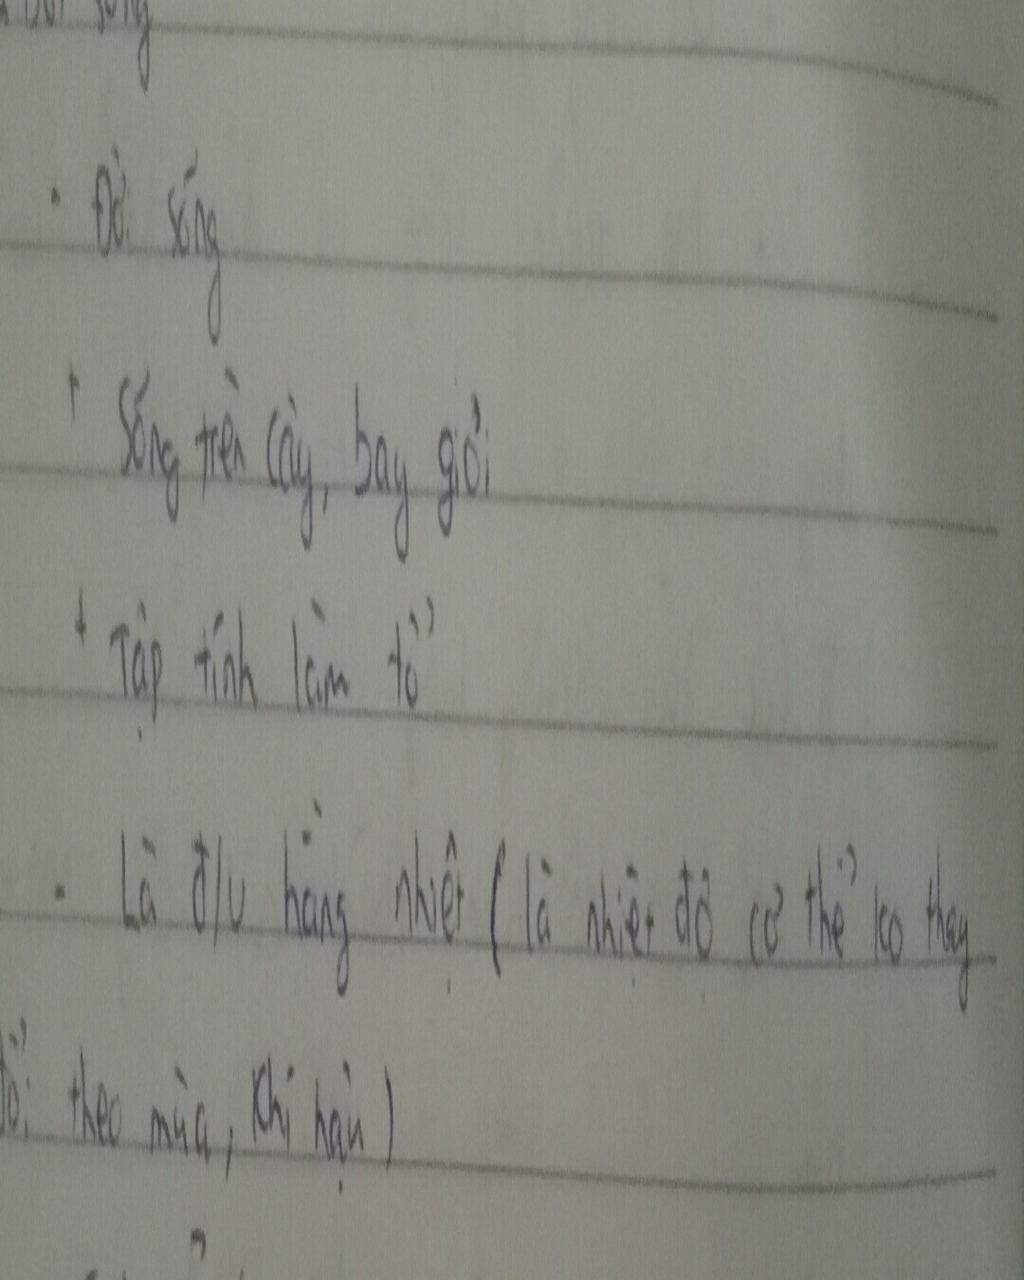 sống
• Đời sống
+ Sống trên cây, bay giỏi
+ Tập tính làm tổ
- Là đ/v hằng nhiệt (là nhiệt độ cơ thể ko thay
đổi theo mùa, khí hậu)